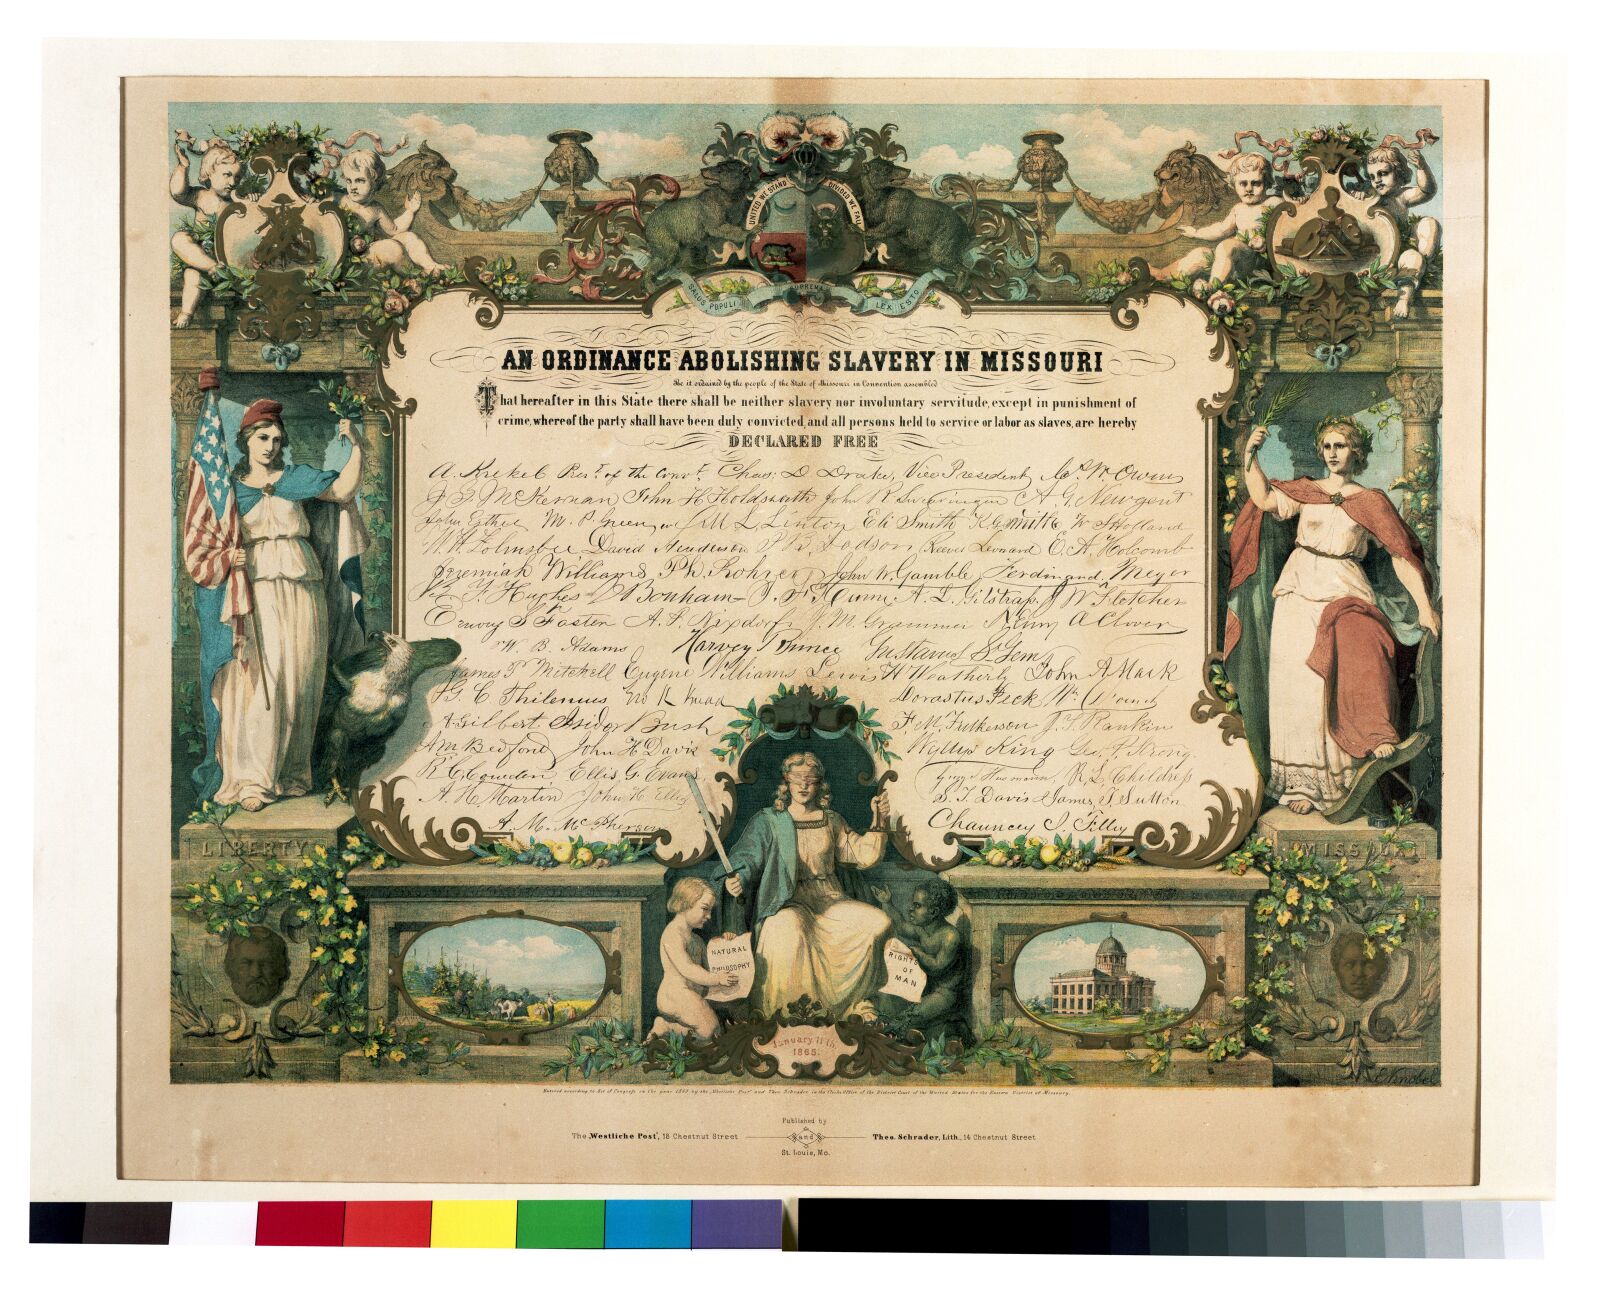 UNITED WE STAND DIVIDED WE FALL
SALUS POPULI SUPREMA LEX ESTO
AN ORDINANCE ABOLISHING SLAVERY IN MISSOURI
Be it ordained by the people of the State of Missouri in Convention assembled
That hereafter in this State there shall be neither slavery nor involuntary servitude, except in punishment of
crime, whereof the party shall have been duly convicted, and all persons held to service or labor as slaves, are hereby
DECLARED FREE
A. Krekel Prest. of the Convt. Chas. D Drake, Vice President W. Owens
McKernan John H Holdsworth John R Swearingen A. G. Newgent
John Esther M. P. Green M. L. Linton Eli Smith K. G. Smith W S Holland
David Henderson Dodson, Reeves Leonard E. A. Holcomb
Jeremiah Williams Ph. Rohrer John W. Gamble Ferdinand Meyer
Hughes Bonham A. L. Gilstrap J W Fletcher
Emory S Foster A. F. Nixdorf M. Grammer Henry A Clover
W. B. Adams Harvey Bunce Gustavus St Gem
James P Mitchell Eugene Williams Lewis H Weatherby John A Mack
G. C. Thilenius K Knead Dorastus Peck
A Gilbert Isidor Bush F. M. Fulkerson J. T. Rankin
A M Bedford John H Davis Wyllys King Geo. P. Strong
R. C. Cowden Ellis G. Evans, Husmann R. L. Childress
A. H. Martin John H. Ellis S. T. Davis James T Sutton
A. M. McPherson Chauncey I. Filley
LIBERTY
MISSOURI
NATURAL
PHILOSOPHY
RIGHTS
OF
MAN
January 11th.
1865.
E. Knobel
Entered according to Act of Congress in the year 1865 by the „Westliche Post“ and Theo Schrader in the Clerks Office of the District Court of the United States for the Eastern District of Missoury.
Published by
The „Westliche Post“, 18 Chestnut Street and Theo. Schrader, Lith., 14 Chestnut Street
St. Louis, Mo.